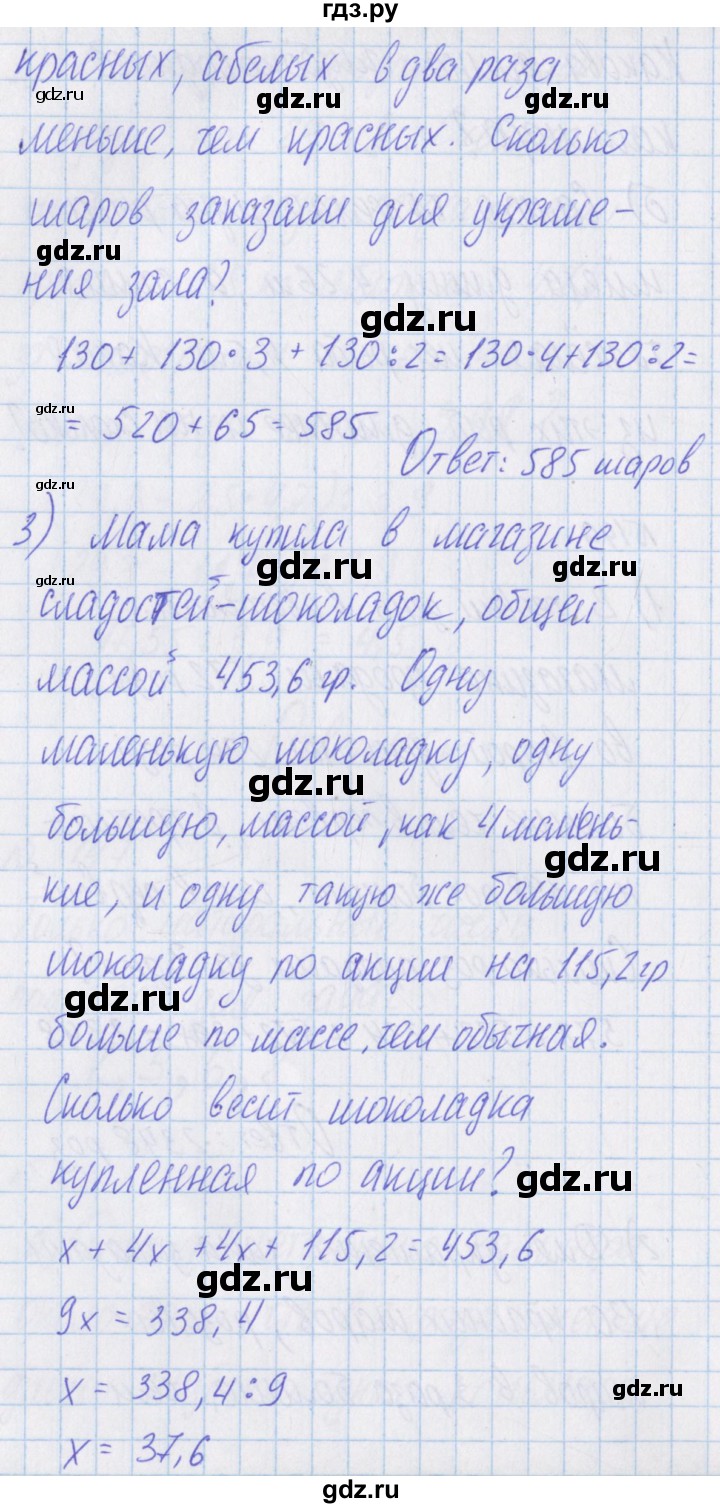 гдз.ру
красных, а белых в два раза
gdz.ru
gdz.ru
gdz.ru
меньше, чем красных. Сколько
шаров заказали для украше-
gdz.ru
ния зала?
gdz.ru
130 + 130·3 + 130:2 = 130·4+130:2=
gdz.ru
= 520 + 65 = 585
Ответ: 585 шаров
gdz.ru
3) Мама купила в магазине
gdz.ru
gdz.ru
gdz.ru
сладостей-шоколадок, общей
массой 453,6 гр. Одну
маленькую шоколадку, одну
gdz.ru
большую, массой, как 4 малень-
gdz.ru
кие, и одну такую же большую
шоколадку по акции на 115,2 гр
gdz.ru
больше по массе, чем обычная.
Сколько весит шоколадка
купленная по акции?
gdz.ru
x + 4x + 4x + 115,2 = 453,6
gdz.ru
9x = 338,4
x = 338,4:9
gdz.ru
x = 37,6
gdz.ru